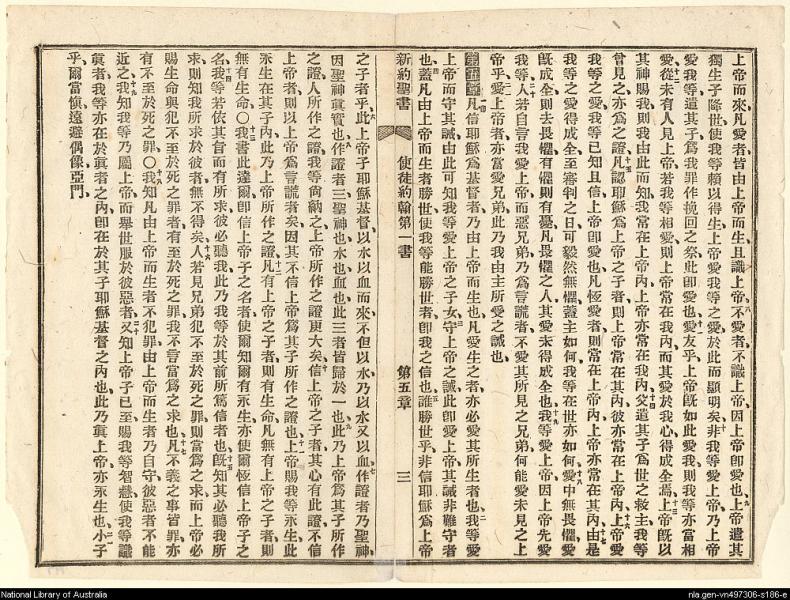 上帝而來凡愛者皆由上帝而生且識上帝、八不愛者不識上帝因上帝卽愛也、九上帝遣其
獨生子降世使我等賴以得生上帝愛我等之愛於此而顯明矣、十非我等愛上帝乃上帝
愛我等遣其子爲我罪作挽回之祭此卽愛也、十一愛友乎上帝旣如此愛我則我等亦當相
愛、十二從未有人見上帝若我等相愛則上帝常在我內而其愛於我心得成全焉、十三上帝旣以
其神賜我則我由此而知我常在上帝內上帝亦常在我內、十四父遣其子爲世之救主我等
曾見之亦爲之證、十五凡認耶穌爲上帝之子者則上帝常在其內彼亦常在上帝內、十六上帝愛
我等之愛我等已知且信上帝卽愛也凡恆愛者則常在上帝內上帝亦常在其內、十七由是
我等之愛得成全至審判之日可毅然無懼蓋主如何我等在世亦如何、十八愛中無畏懼愛
旣成全則去畏懼有懼則有憂凡畏懼之人其愛未得成全也、十九我等愛上帝因上帝先愛
我等、二十人若自言我愛上帝而惡兄弟乃爲言謊者不愛其所見之兄弟何能愛未見之上
帝乎、二一愛上帝者亦當愛兄弟此乃我由主所受之誡也、
第五章 一凡信耶穌爲基督者乃由上帝而生也凡愛生之者亦必愛其所生者也、二我等愛
上帝而守其誡由此可知我等愛上帝之子女、三守上帝之誡此卽愛上帝其誡非難守者
也、四蓋凡由上帝而生者勝世使我等能勝世者卽我之信也、五誰勝世乎非信耶穌爲上帝
新約聖書 使徒約翰第一書 第五章 三
之子者乎、六此上帝子耶穌基督以水以血而來不但以水乃以水又以血、七作證者乃聖神
因聖神眞實也、八作證者三聖神也水也血也此三者皆歸於一也、九此乃上帝爲其子所作
之證人所作之證我等尙納之上帝所作之證更大矣、十信上帝之子者其心有此證不信
上帝者則以上帝爲言謊者矣因其不信上帝爲其子所作之證也、十一上帝賜我等永生此
永生在其子內此乃上帝所作之證、十二凡有上帝之子者則有生命凡無有上帝之子者則
無有生命〇十三我書此達爾卽信上帝子之名者使爾知爾有永生亦使爾恆信上帝子之
名、十四我等若依其旨而有所求彼必聽我此乃我等於其前所篤信者也、十五旣知其必聽我所
求則知我所求於彼者無不得矣、十六人若見兄弟犯不至於死之罪則當爲之求而上帝必
賜生命與犯不至於死之罪者有至於死之罪我不言當爲之求也、十七凡不義之事皆罪亦
有不至於死之罪〇十八我知凡由上帝而生者不犯罪由上帝而生者乃自守彼惡者不能
近之、十九我知我等乃屬上帝而舉世服於彼惡者、二十又知上帝子已至賜我等智慧使我等識
眞者我等亦在於眞者之內卽在於其子耶穌基督之內也此乃眞上帝亦永生也、二一小子
乎爾當愼遠避偶像亞門、
National Library of Australia
nla.gen-vn497306-s186-e